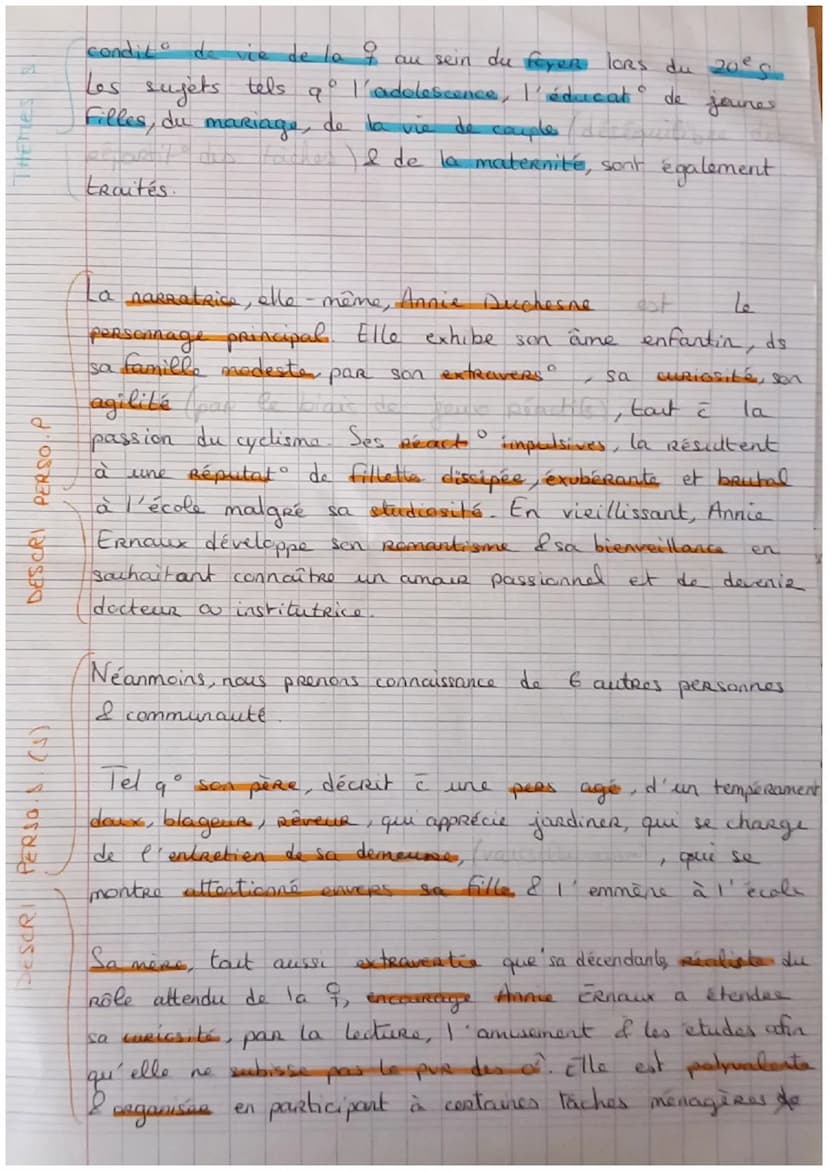 THÈMES
condit° de vie de la ♀ au sein du foyer lors du 20e s.
Les sujets tels q° l'adolescence, l'éducat° de jeunes
filles, du mariage, de la vie de couple (déséquilibre de
répartit° des tâches) & de la maternité, sont également
traités.
DESCRI PERSO.P
La narratrice, elle-même, Annie Duchesne est le
personnage principal. Elle exhibe son âme enfantin, ds
sa famille modeste, par son extravers°, sa curiosité, son
agilité (par le biais de jeux), tout c̄ la
passion du cyclisme. Ses réact° impulsives, la résultent
à une réputat° de fillette dissipée, exubérante et brutal
à l'école malgré sa studiosité. En vieillissant, Annie
Ernaux développe son romantisme & sa bienveillance en
souhaitant connaître un amour passionnel et de devenir
docteur ou institutrice.
DESCRI PERSO.S.(s)
Néanmoins, nous prenons connaissance de 6 autres personnes
& communauté.
Tel q° son père, décrit c̄ une pers agé, d'un tempérament
doux, blageur, rêveur, qui apprécie jardiner, qui se charge
de l'entretien de sa demeure, , qui se
montre attentionné envers sa fille & l'emmène à l'école
Sa mère, tout aussi extravertie que sa décendante, réaliste du
rôle attendu de la ♀, encourage Annie Ernaux a étendre
sa curiosité, par la lecture, l'amusement & les études afin
qu'elle ne subisse pas le pvr des ♂. Elle est polyvalente
& organisée en participant à certaines tâches ménagères de